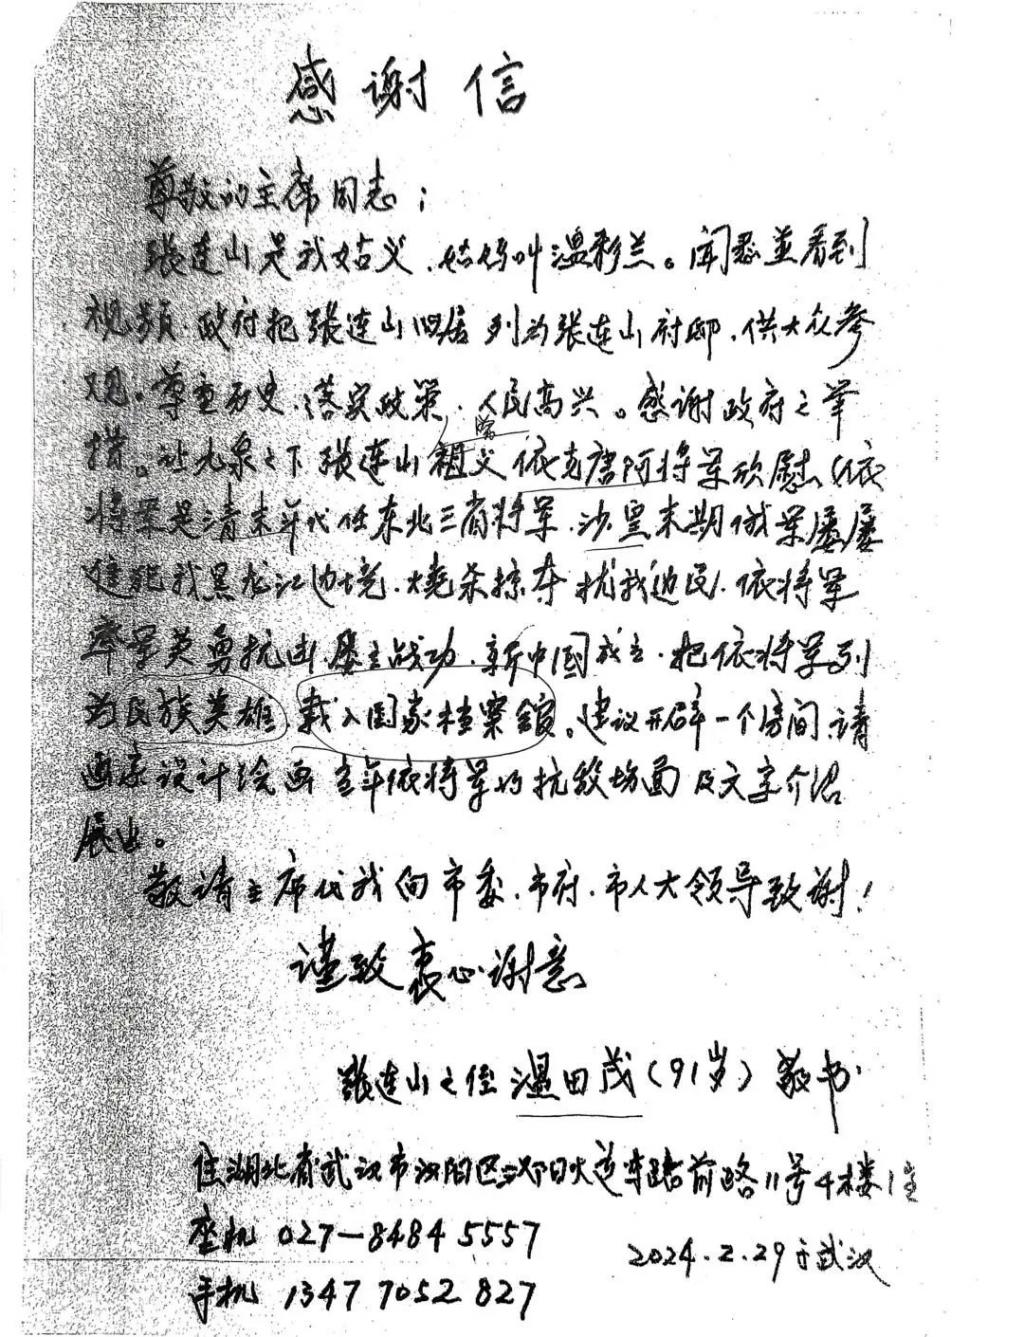 感谢信
尊敬的主席同志：
张连山是我姑父、姑妈叫温彩兰。闻悉並看到
视频、政府把张连山旧居列为张连山府邸、供大众参
观。尊重历史、落实政策、人民高兴。感谢政府之举
措。让九泉之下张连山祖父依克唐阿将军欣慰（依
将军是清末年代任东北三省将军、沙皇末期俄军屡屡
侵犯我黑龙江边境、烧杀掠夺扰我边民、依将军
率军英勇抗击、屡立战功、新中国成立、把依将军列
为民族英雄）载入国家档案館。建议开辟一个房间、请
画家设计绘画当年依将军的抗敌场面及文字介绍
展出。
敬请主席代我向市委、市府、市人大领导致谢！
谨致衷心谢意
张连山之侄温田茂（91岁）敬书
住湖北省武汉市汉阳区汉阳大道车站前路11号4楼1
座机 027—8484 5557
2024.2.29于武汉
手机 1347 7052 827